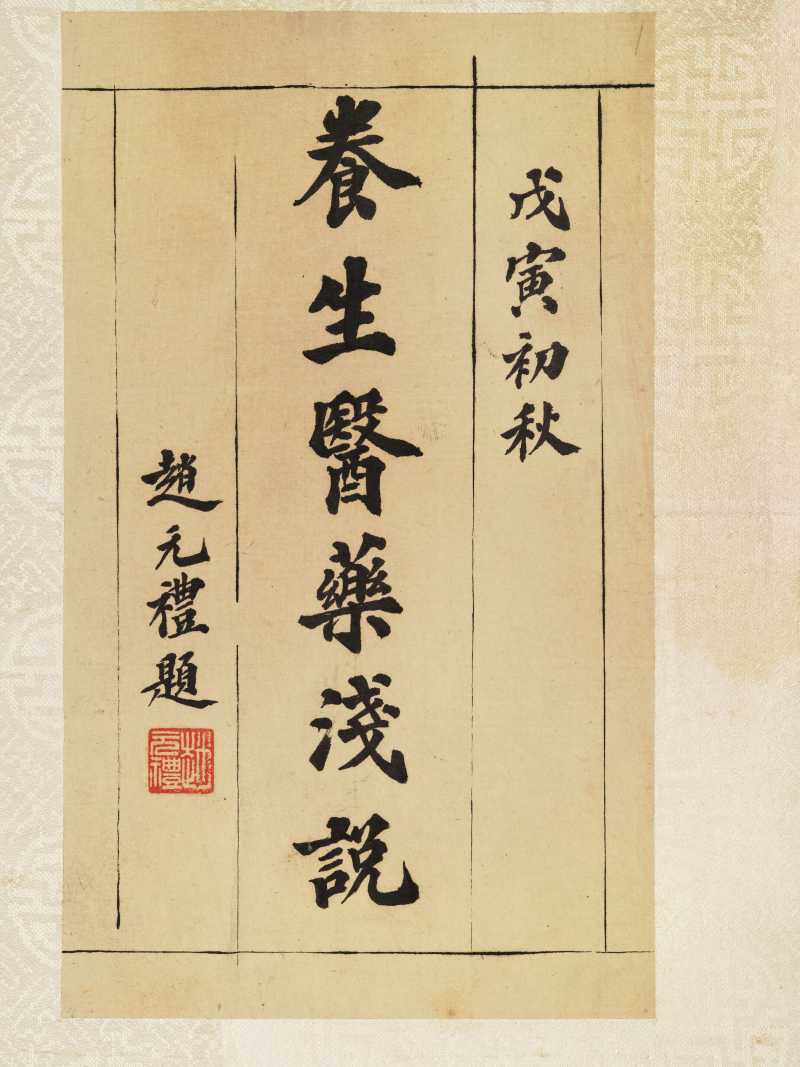 戊寅初秋
養生醫藥淺説
趙元禮題
趙元禮